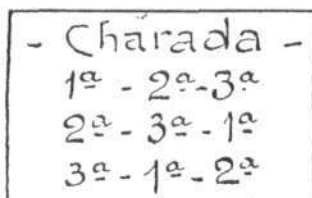 - Charada -
1ª - 2ª - 3ª
2ª - 3ª - 1ª
3ª - 1ª - 2ª